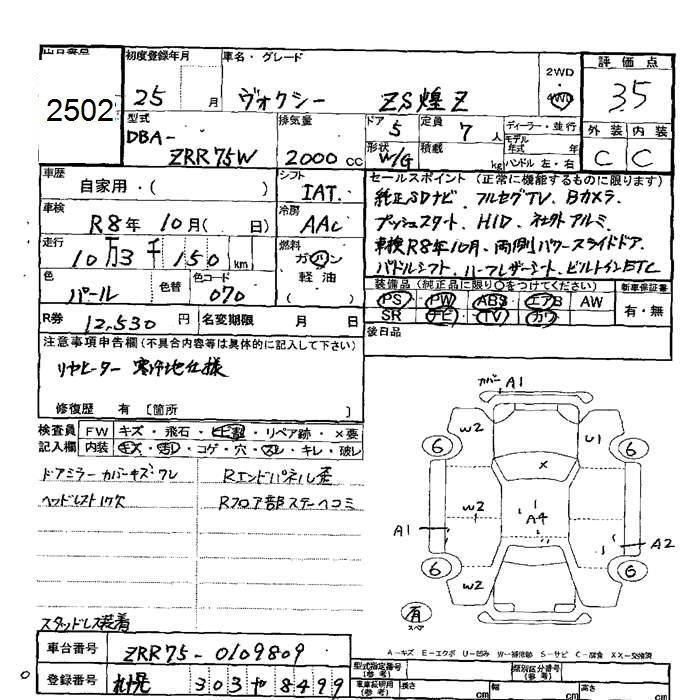 初度登録年月 車名・グレード 2WD 評価点
2502 25 月 ヴォクシー ZS煌Z 4WD 3.5
型式 排気量 ドア 定員 ディーラー・並行 外装 内装
DBA- 5 7人 モデル年式 年
ZRR75W 2000cc 形状 W/G 積載 kg ハンドル 左・右 C C
車歴 シフト セールスポイント (正常に機能するものに限ります)
自家用・( ) IAT. 純正SDナビ、フルセグTV、Bカメラ、
車検 冷房 プッシュスタート、HID、社外アルミ、
R8年10月( 日) AAC 車検R8年10月、両側パワースライドドア、
走行 燃料 パドルシフト、ハーフレザーシート、ビルトインETC
10万3千150km ガソリン 軽油 ( )
色 色替 色コード 装備品(純正品に限り○をつけてください) 新車保証書
パール 070 PS・PW・ABS・エアB AW 有・無
R券 12,530円 名変期限 月 日 SR ナビ・TV・カワ
後日品
注意事項申告欄(不具合内容等は具体的に記入して下さい)
リヤヒーター 寒冷地仕様
修復歴 有 〔箇所 〕
検査員記入欄 FW キズ・飛石・ ・リペア跡・×要
内装 キズ・汚レ・コゲ・穴・スレ・キレ・破レ
ドアミラーカバーキズワレ Rエンドパネル歪
ヘッドレスト1ケ欠 Rフロア部ステーヘコミ
カバーA1
W2 U1
6 6
×
W2 1 A4
A1 A2
6 6
W2
有
スペア
スタッドレス装着
A-キズ E-エクボ U-凹み W-補修跡 S-サビ C-腐食 XX-交換済
車台番号 ZRR75-0109809
型式指定番号(参考) 類別区分番号(参考)
登録番号 札幌 303 ヤ 8499
長さ cm 幅 cm 高さ cm